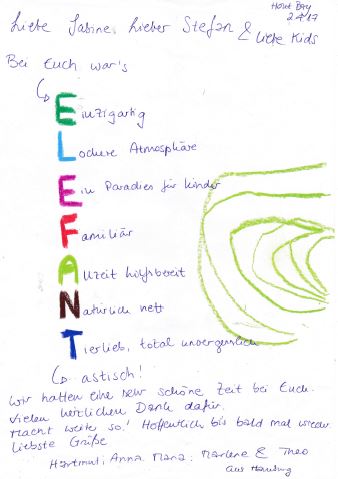 Hout Bay
2.4/17
Liebe Sabine, Lieber Stefan & liebe Kids
Bei Euch war's
Einzigartig
Lockere Atmosphäre
Ein Paradies für Kinder
Familiär
Allzeit hilfsbereit
Natürlich nett
Tierlieb, total unvergesslich
astisch!
Wir hatten eine sehr schöne Zeit bei Euch.
Vielen herzlichen Dank dafür.
Macht weiter so! Hoffentlich bis bald mal wieder
Liebste Grüße
Hartmut, Anna, Marlene & Theo
aus Hamburg